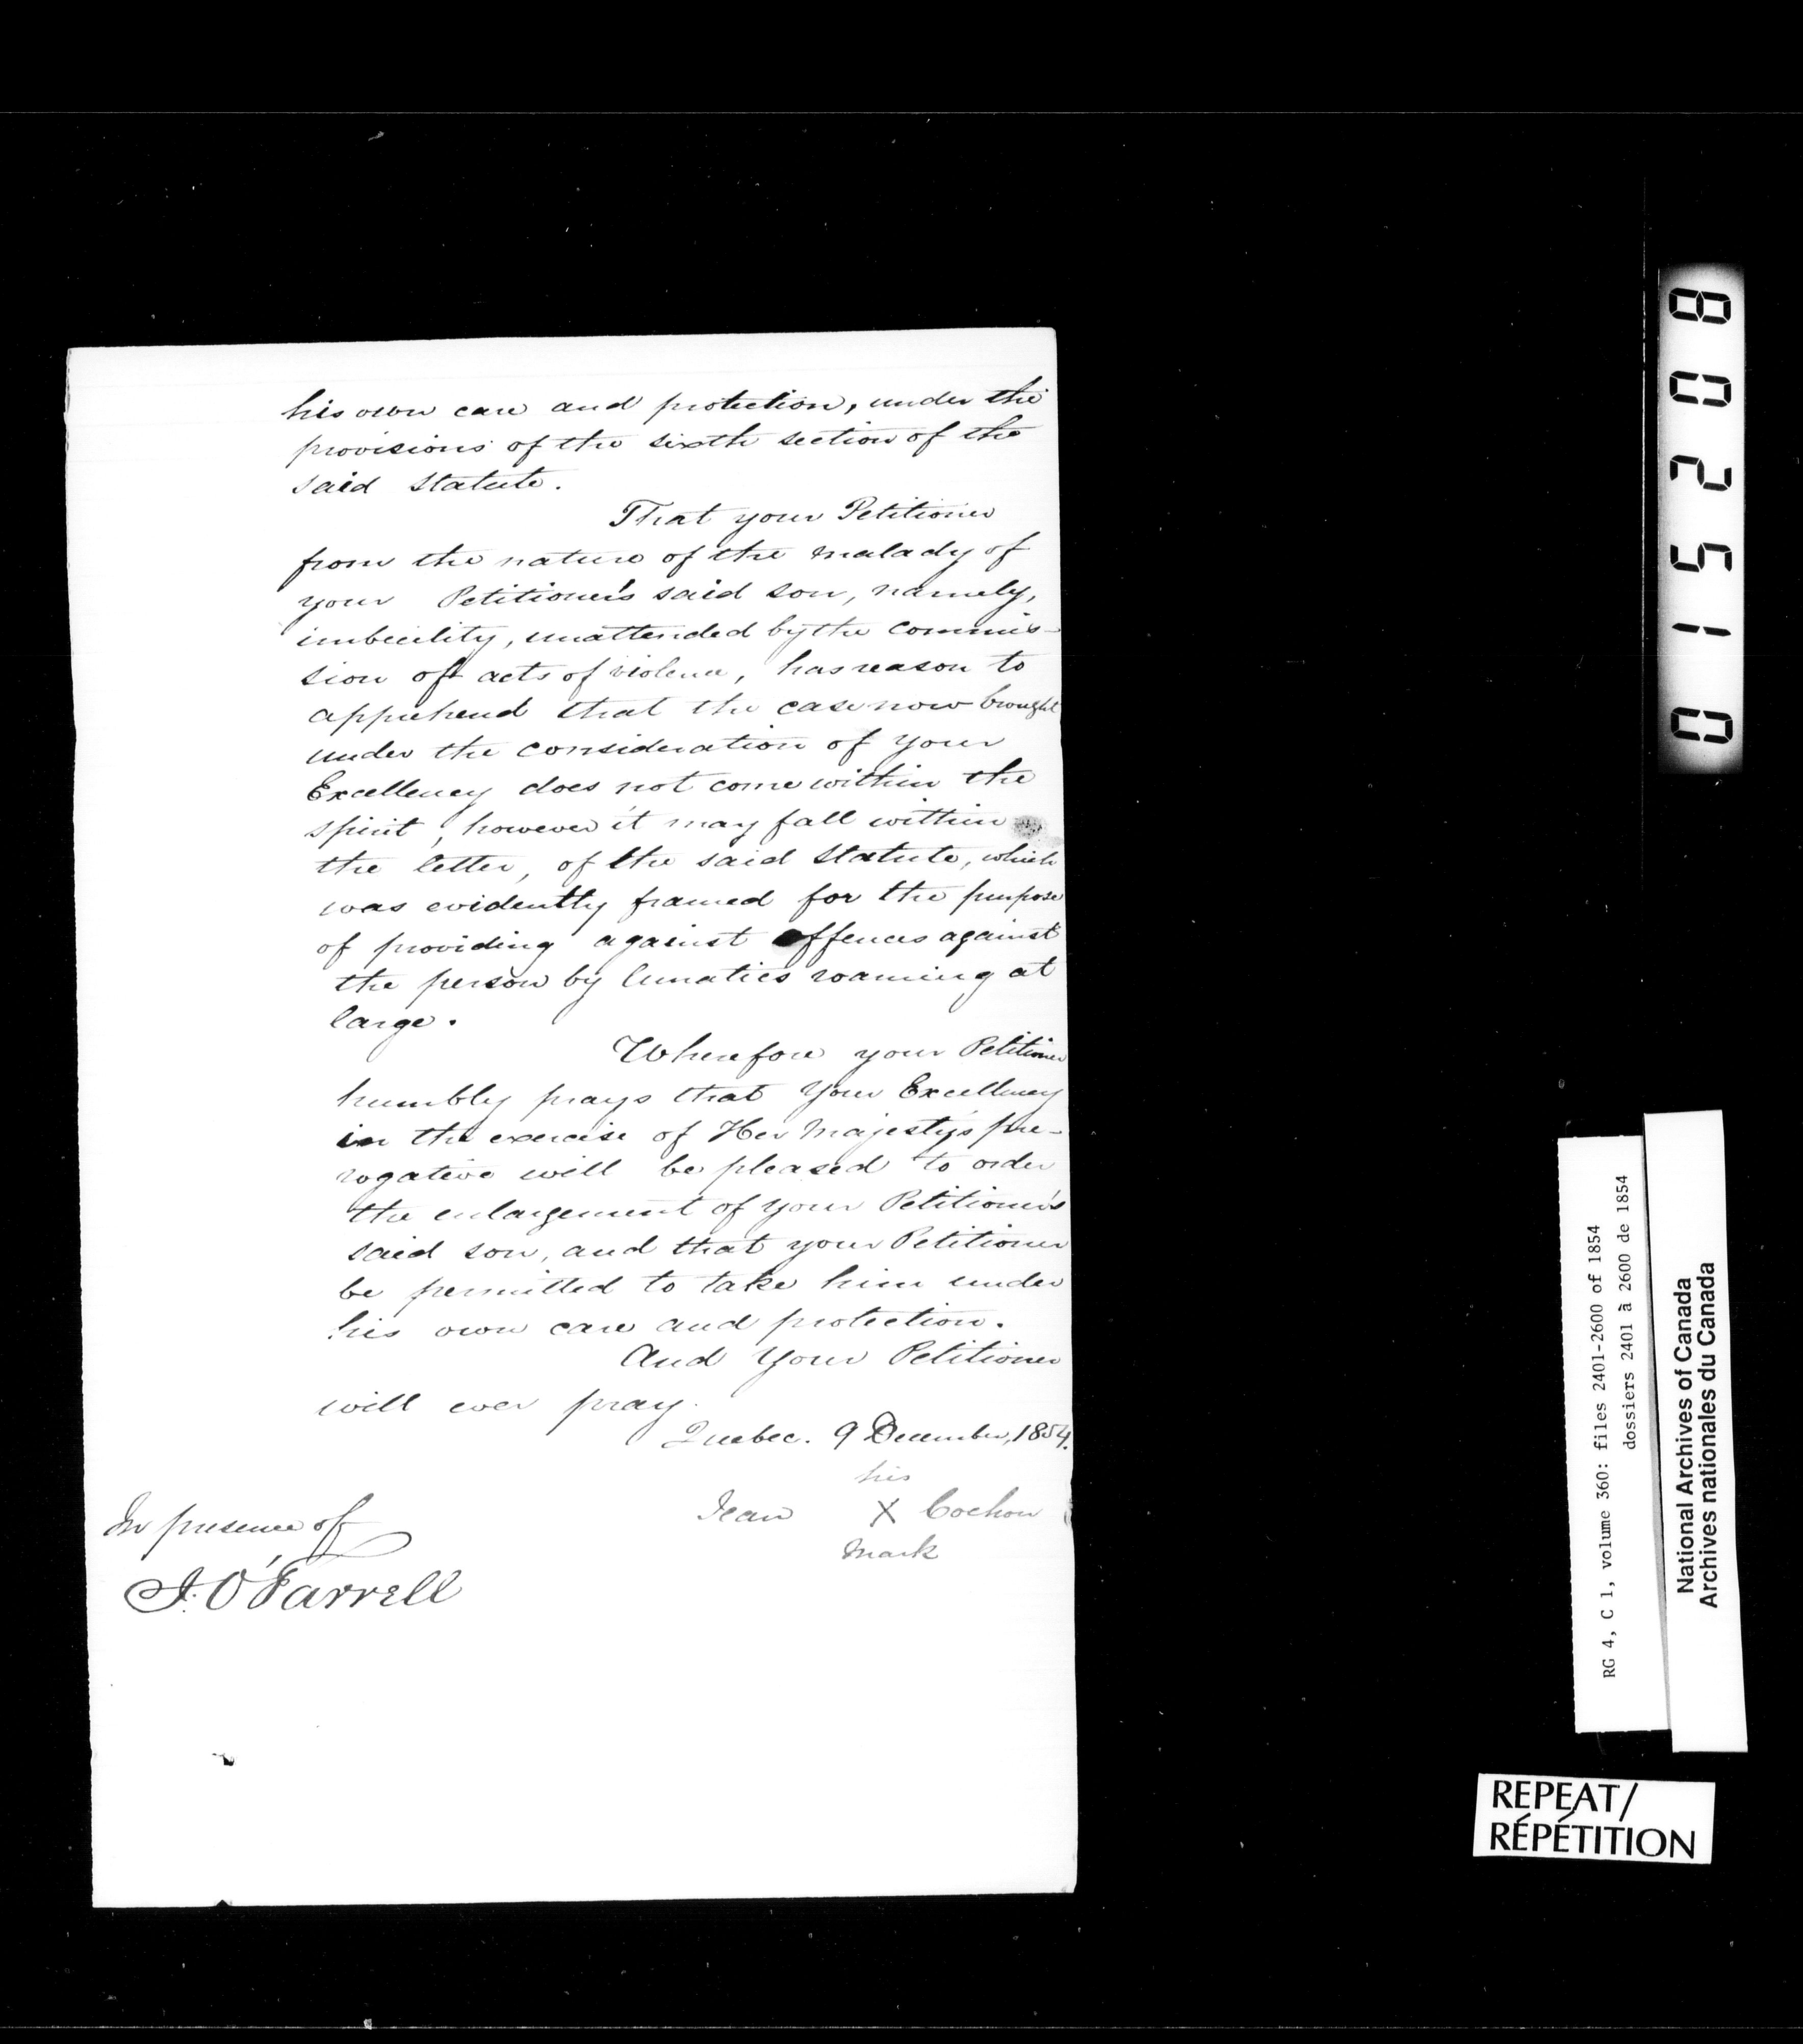 his own care and protection, under the
provisions of the sixth section of the
said Statute.
That your Petitioner
from the nature of the malady of
your Petitioner's said son, namely,
imbecility, unattended by the commis-
sion of acts of violence, has reason to
apprehend that the case now brought
under the consideration of your
Excellency does not come within the
spirit, however it may fall within
the letter, of the said Statute, which
was evidently framed for the purpose
of providing against offences against
the person by lunatics roaming at
large.
Wherefore your Petitioner
humbly prays that Your Excellency
in the exercise of Her Majesty's pre-
rogative will be pleased to order
the enlargement of your Petitioner's
said son, and that your Petitioner
be permitted to take him under
his own care and protection.
And Your Petitioner
will ever pray.
Quebec. 9 December, 1854.
his
Jean X Cochon
mark
In presence of
J. O'Farrell
015208
RG 4, C 1, volume 360: files 2401-2600 of 1854
dossiers 2401 à 2600 de 1854
National Archives of Canada
Archives nationales du Canada
REPEAT/
RÉPÉTITION